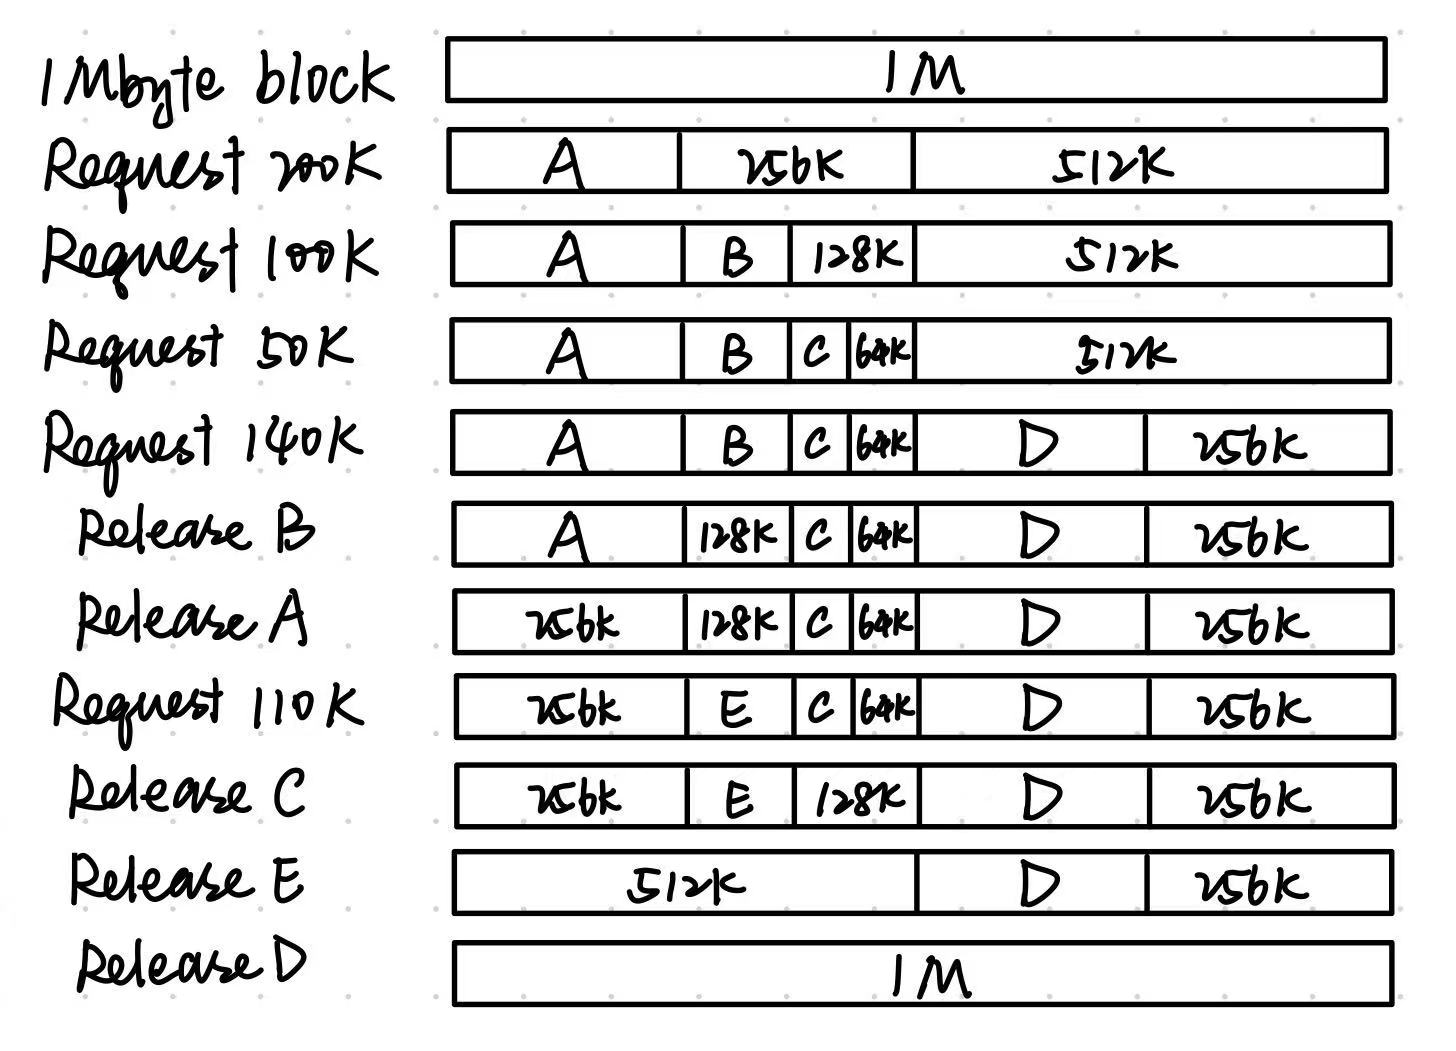 1Mbyte block 1M
Request 200K A 256K 512K
Request 100K A B 128K 512K
Request 50K A B C 64K 512K
Request 140K A B C 64K D 256K
Release B A 128K C 64K D 256K
Release A 256K 128K C 64K D 256K
Request 110K 256K E C 64K D 256K
Release C 256K E 128K D 256K
Release E 512K D 256K
Release D 1M